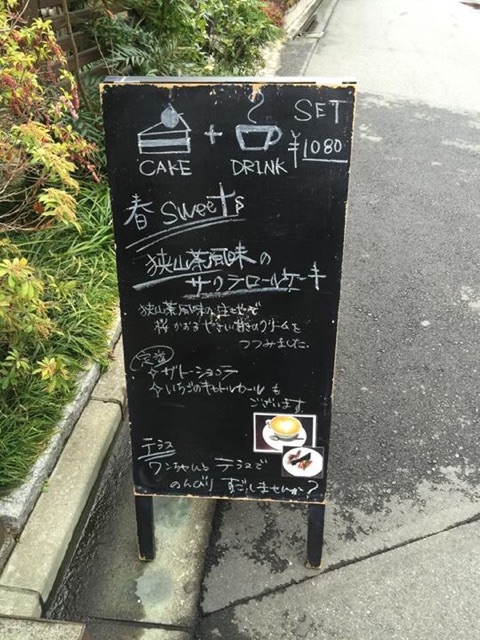 CAKE + DRINK SET ¥1080
春 sweets
狭山茶風味の
サクラロールケーキ
狭山茶風味の生地で
桜かおるやさしい甘さのクリームを
つつみました。
定番
☆ザトーショコラ
☆いちごのキャトルカール も
ございます
テラス
ワンちゃんと テラスで
のんびり すごしませんか?